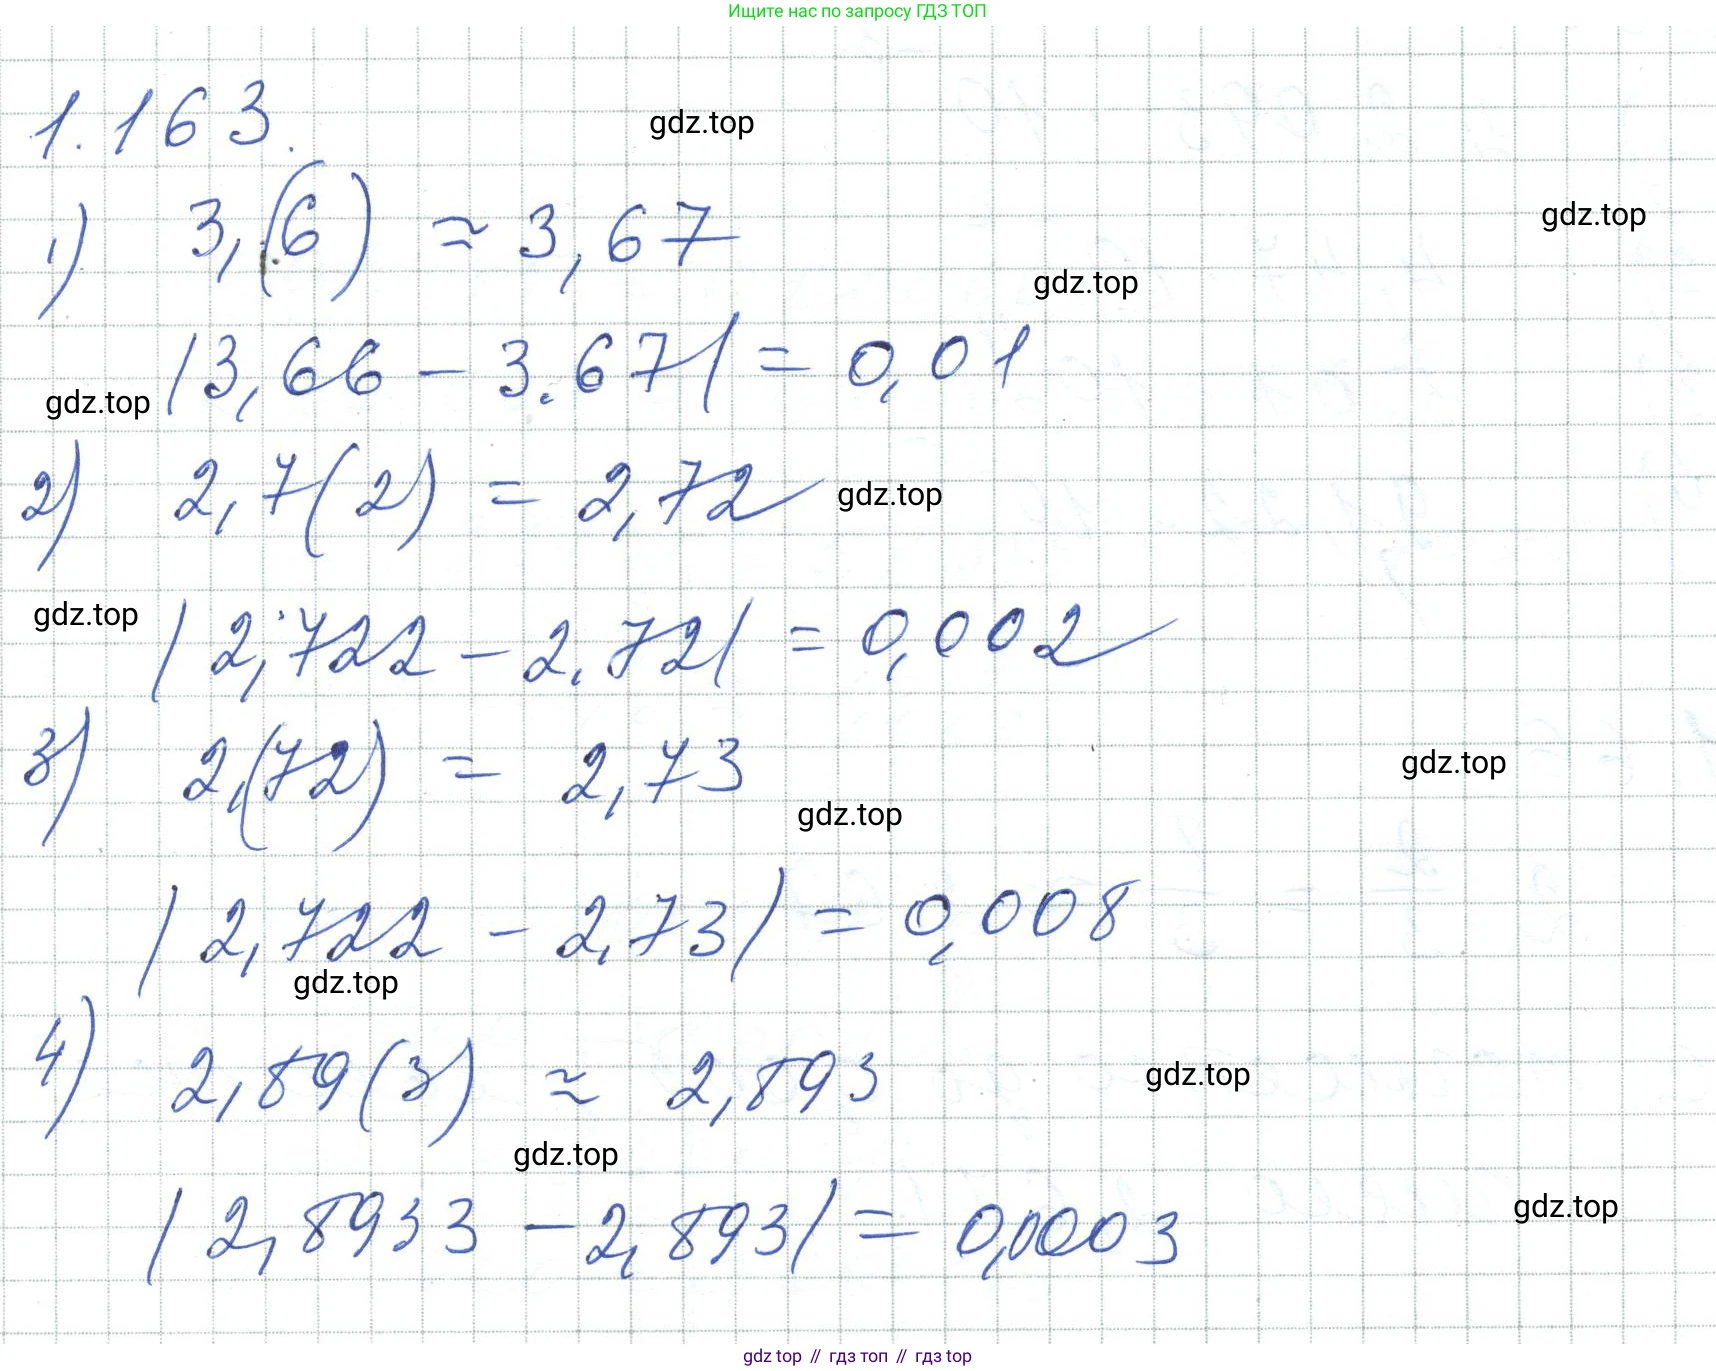 Ищите нас по запросу ГДЗ ТОП
1.163.
gdz.top
1) 3,(6) ≈ 3,67
gdz.top
gdz.top
|3,66 - 3.67| = 0,01
gdz.top
2) 2,7(2) = 2,72
gdz.top
gdz.top
|2,722 - 2.72| = 0,002
3) 2,(72) = 2,73
gdz.top
gdz.top
|2,722 - 2,73| = 0,008
gdz.top
4) 2,89(3) ≈ 2,893
gdz.top
gdz.top
|2,8933 - 2,893| = 0,0003
gdz.top
gdz.top // гдз топ // гдз top